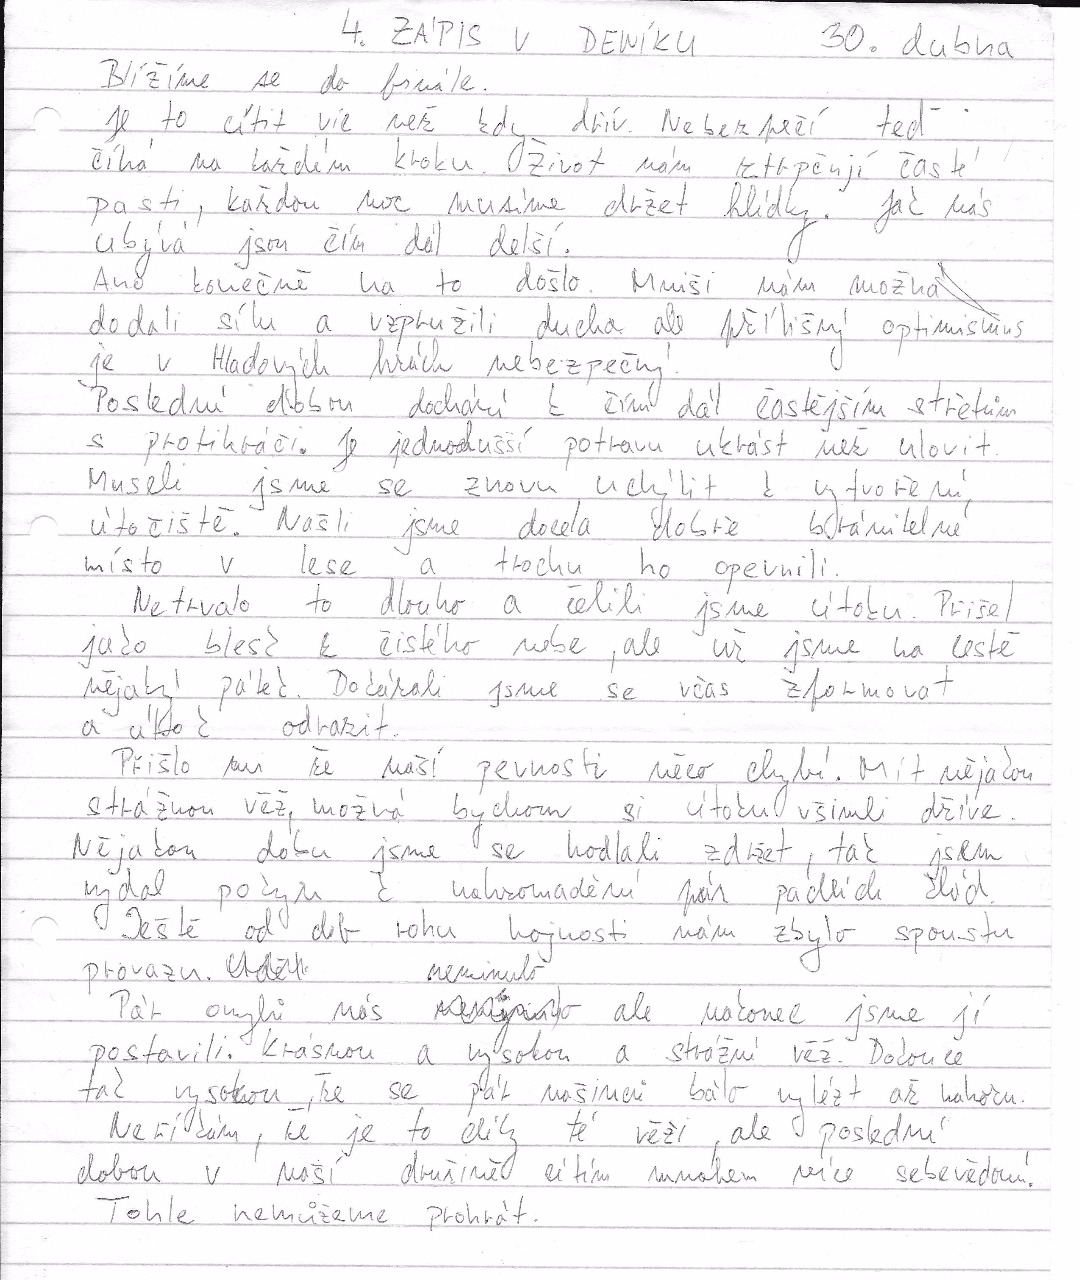 4. ZÁPIS V DENÍKU 30. dubna
Blížíme se do finále.
Je to cítit víc než kdy dřív. Nebezpečí teď
číhá na každém kroku. Život nám ztrpčují časté
pasti, každou noc musíme držet hlídky. Jak nás
ubývá jsou čím dál delší.
Ano konečně na to došlo. Mniši nám možná
dodali sílu a vzpružili ducha ale přílišný optimismus
je v Hladových hrách nebezpečný!
Poslední dobou dochází k čím dál častějším střetům
s protihráči. Je jednodušší potravu ukrást než ulovit.
Museli jsme se znovu uchýlit k vytvoření
útočiště. Našli jsme docela dobře bránitelné
místo v lese a trochu ho opevnili.
Netrvalo to dlouho a čelili jsme útoku. Přišel
jako blesk z čistého nebe, ale už jsme na cestě
nějaký pátek. Dokázali jsme se včas zformovat
a útok odrazit.
Přišlo mi že naší pevnosti něco chybí. Mít nějakou
strážnou věž, možná bychom si útoku všimli dříve.
Nějakou dobu jsme se hodlali zdržet, tak jsem
vydal pokyn k nahromadění pár padlích klád.
Ještě od dob rohu hojnosti nám zbylo spoustu
provazu. neminulo
Pár omylů nás ale nakonec jsme jí
postavili. Krásnou a vysokou a strážní věž. Dokonce
tak vysokou, že se pár našinců bálo vylézt až nahoru.
Neříkám, že je to díky té věži, ale poslední
dobou v naší družině cítím mnohem více sebevědomí.
Tohle nemůžeme prohrát.